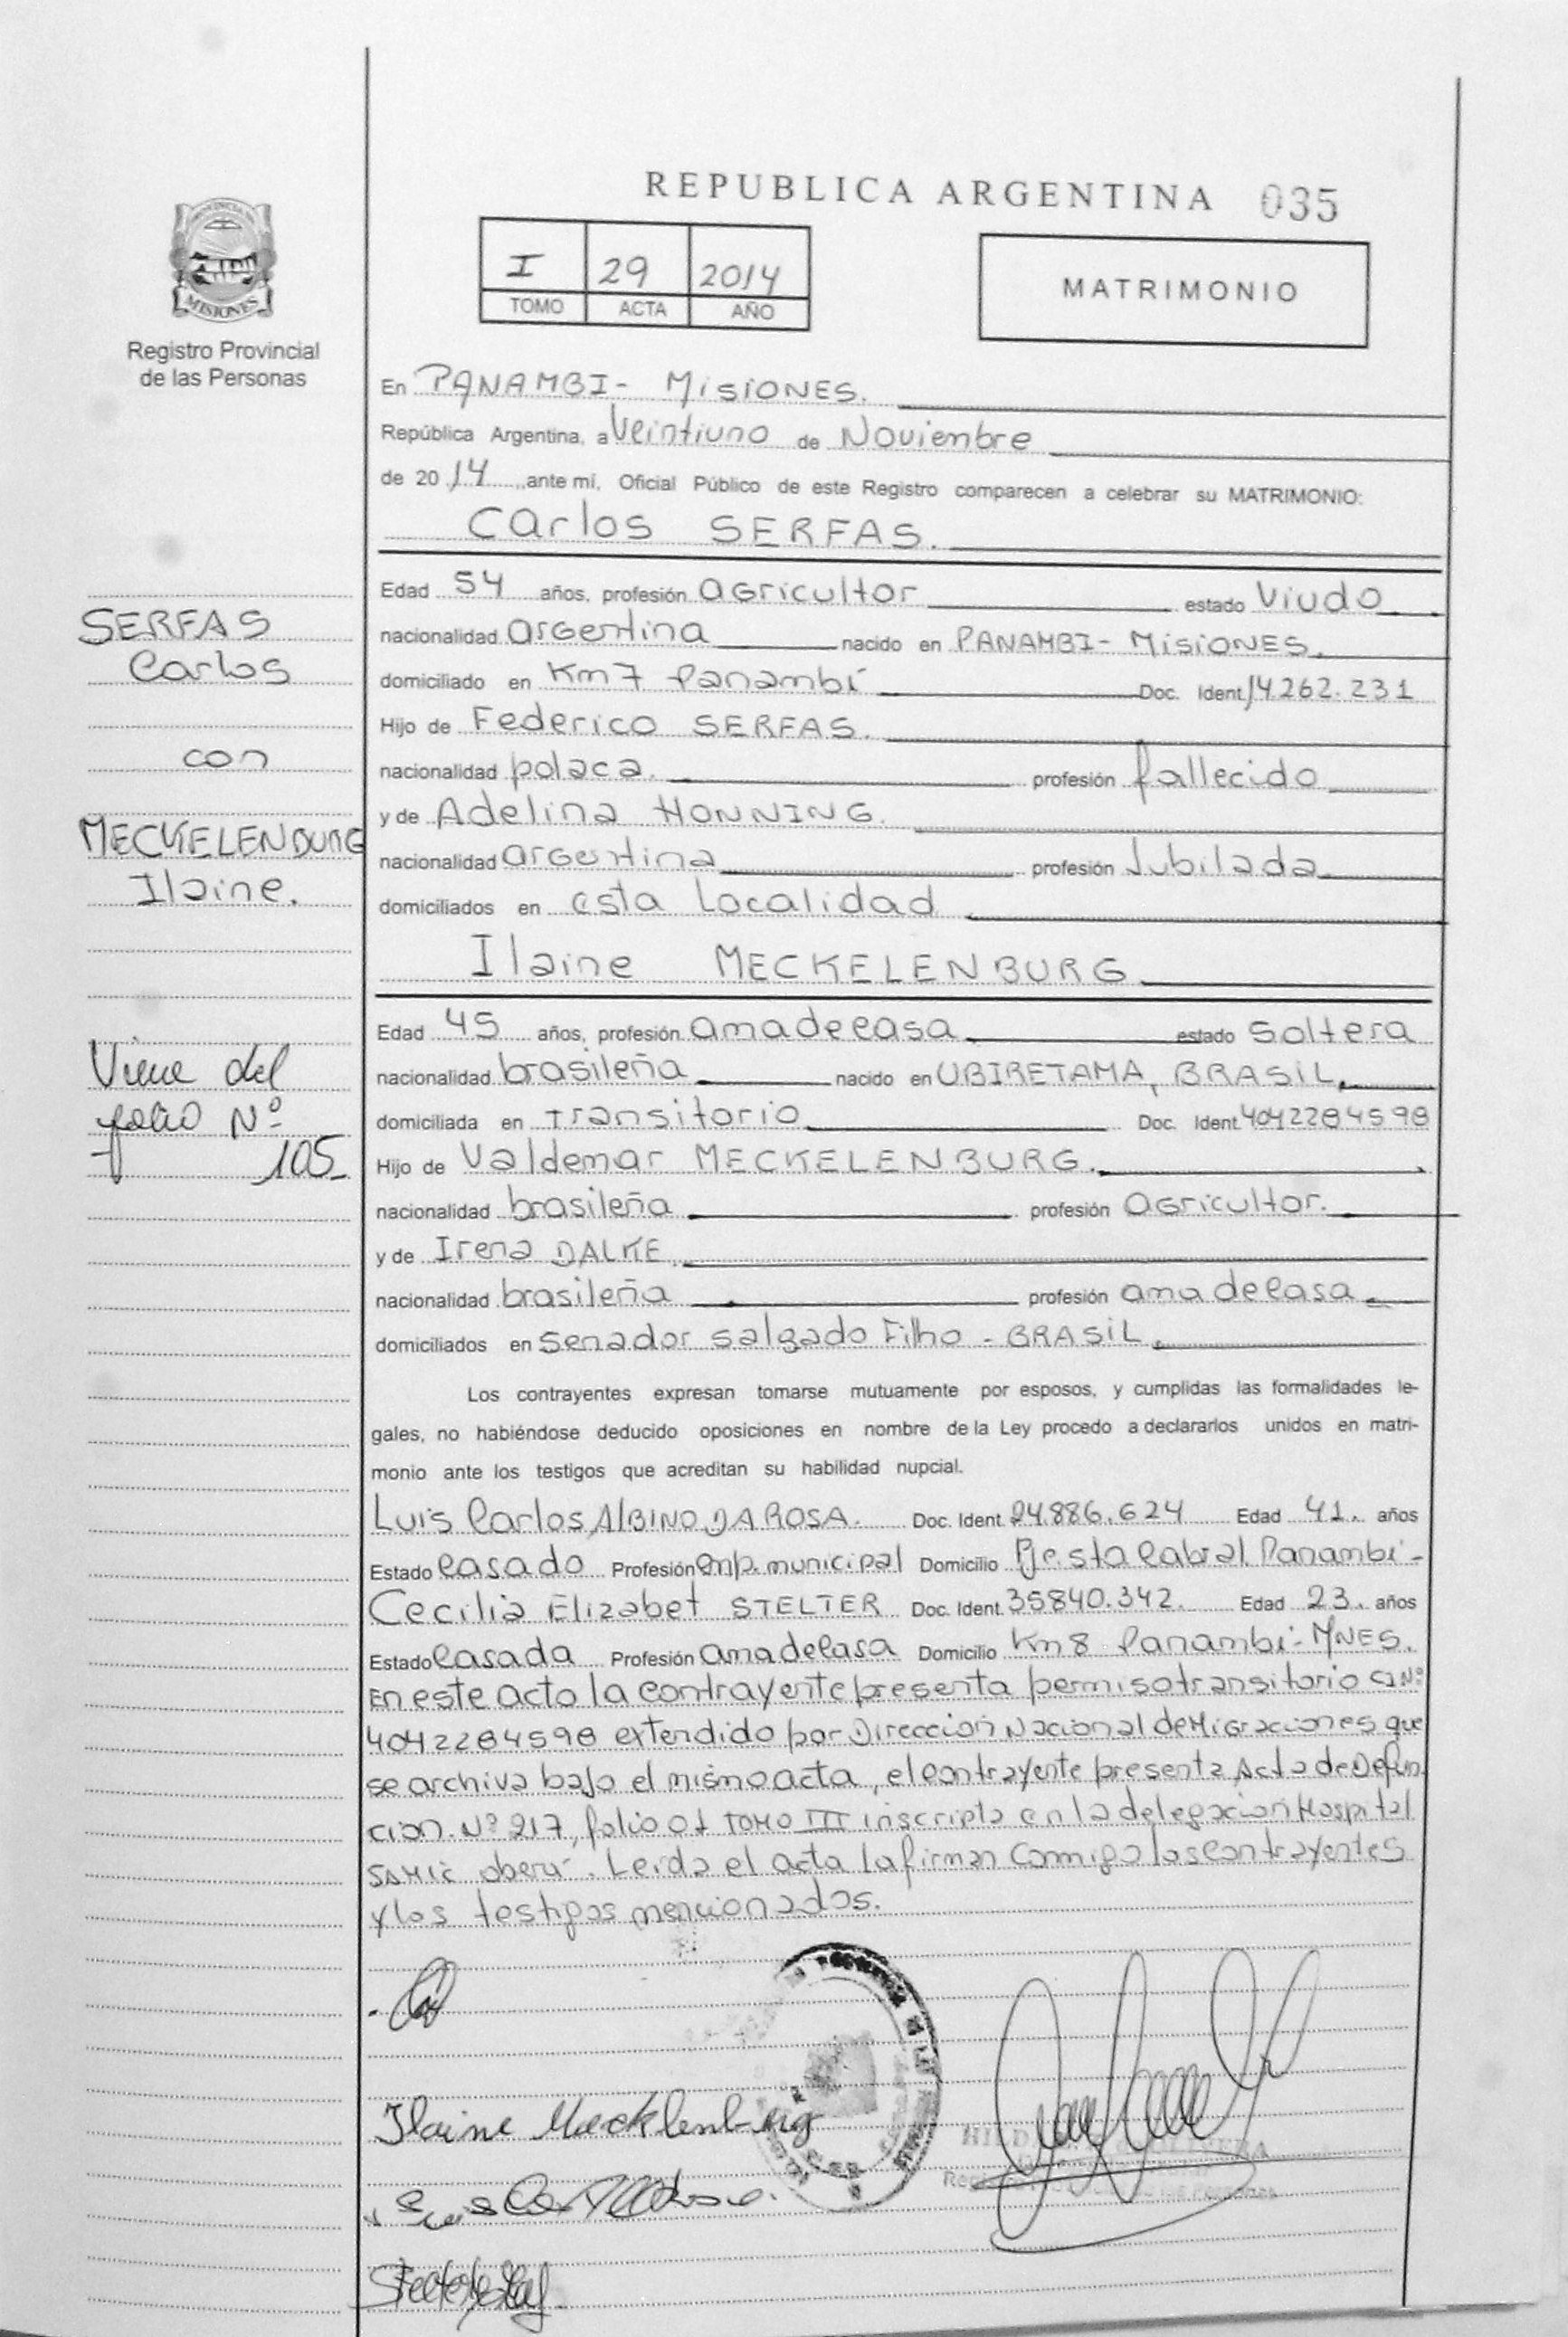 REPUBLICA ARGENTINA 035
PROVINCIA DE
MISIONES
Registro Provincial
de las Personas
I 29 2014
TOMO ACTA AÑO
MATRIMONIO
En PANAMBI- MISIONES.
República Argentina, a Veintiuno de Noviembre
de 2014 ante mí, Oficial Público de este Registro comparecen a celebrar su MATRIMONIO:
Carlos SERFAS.
Edad 54 años, profesión agricultor estado Viudo
nacionalidad argentina nacido en PANAMBI- MISIONES.
domiciliado en Km7 Panambí Doc. Ident. 14.262.231
Hijo de Federico SERFAS.
nacionalidad polaca. profesión fallecido
y de Adelina HONNING.
nacionalidad argentina profesión Jubilada
domiciliados en esta Localidad
Ilaine MECKELENBURG
Edad 45 años, profesión amadecasa estado Soltera
nacionalidad brasileña nacido en UBIRETAMA, BRASIL,
domiciliada en Transitorio Doc. Ident. 4042284598
Hijo de Valdemar MECKELENBURG.
nacionalidad brasileña profesión agricultor.
y de Irena DALKE.
nacionalidad brasileña profesión ama decasa
domiciliados en Senador Salgado Filho - BRASIL.
SERFAS
Carlos
con
MECKELENBURG
Ilaine.
Viene del
folio Nº
105
Los contrayentes expresan tomarse mutuamente por esposos, y cumplidas las formalidades le-
gales, no habiéndose deducido oposiciones en nombre de la Ley procedo a declararlos unidos en matri-
monio ante los testigos que acreditan su habilidad nupcial.
Luis Carlos AlBINO DA ROSA. Doc. Ident. 24.886.624 Edad 41. años
Estado Casado Profesión emp. municipal Domicilio Pje. sta Cabral Panambí-
Cecilia Elizabet STELTER Doc. Ident. 35840.342. Edad 23. años
Estado Casada Profesión amadecasa Domicilio Km 8 Panambí- MNES.
En este acto la contrayente presenta permiso transitorio CI Nº
4042284598 extendido por Dirección Nacional de Migraciones que
se archiva bajo el mismo acta, el contrayente presenta Acta de Defun
cion. Nº 217, folio 01 TOMO III inscripta en la delegacion Hospital
SAMIC oberá. Leida el acta la firman conmigo los contrayentes
y los testigos mencionados.
Ilaine Mecklenburg